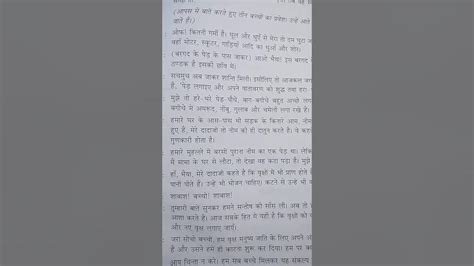 (आपस में बातें करते हुए तीन बच्चों का प्रवेश। उन्हें आते
जाते हैं।)
ओफ! कितनी गर्मी है। धूल और धुएँ से मेरा तो दम घुटा
वहाँ मोटर, स्कूटर, गाड़ियों आदि का धुआँ और शोर।
(बरगद के पेड़ के पास जाकर) आओ भैया! इस बरगद
ठण्डक है इसकी छाँव में।
सचमुच अब जाकर शान्ति मिली। इसीलिए तो आजकल
है, 'पेड़ लगाइए और अपने वातावरण को शुद्ध तथा हरा
मुझे तो हरे-भरे पेड़-पौधे, बाग-बगीचे बहुत अच्छे लगते
बगीचे में अमरूद, नींबू, गुलाब और चमेली लगा रखे हैं।
हमारे घर के आस-पास भी सड़क के किनारे आम, नीम
हुए हैं, मेरे दादाजी तो नीम की ही दातुन करते हैं। वे कहते
गुणकारी होता है।
हमारे मुहल्ले में बरसों पुराना नीम का एक पेड़ था।
में मामा के घर से लौटा, तो देखा वह कटा पड़ा है।
हाँ, भैया, मेरे दादाजी कहते हैं कि वृक्षों में भी प्राण होते हैं
पानी पीते हैं। उन्हें भी भोजन चाहिए। कटने से उन्हें भी
शाबाश! बच्चो! शाबाश!
तुम्हारी बातें सुनकर हमने सन्तोष की साँस ली। अब तो
आशा करते हैं। आज सबके हित में यही है कि वृक्षों को
और नए वृक्ष लगाए जाएँ।
जरा सोचो बच्चो, हम वृक्ष मनुष्य जाति के लिए अपने
है और उसने हमें ही काटना शुरू कर दिया। हम पर
आप चिन्ता न करें। हम सब बच्चे मिलकर यह संकल्प